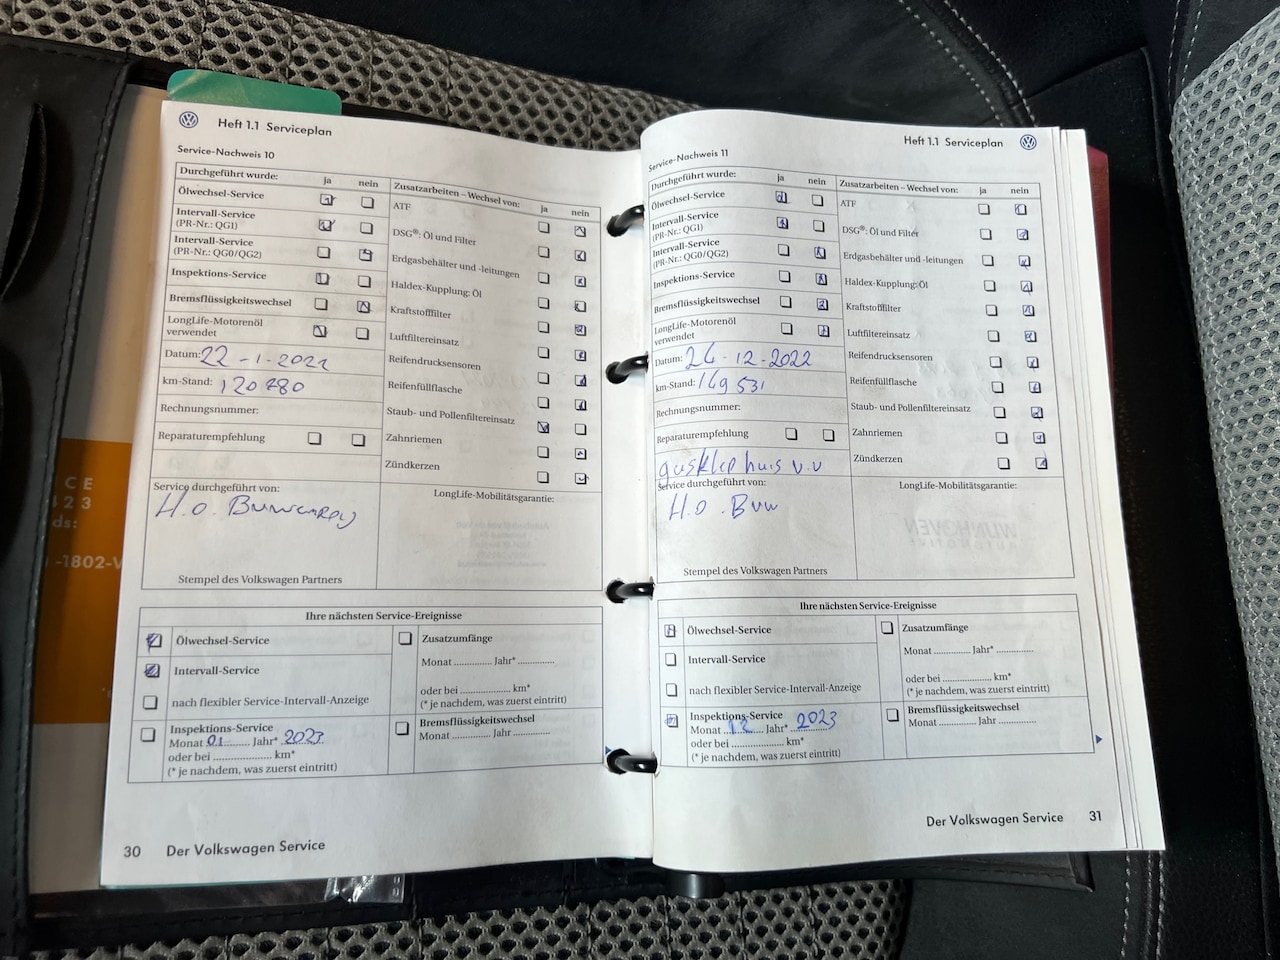 Heft 1.1 Serviceplan
Service-Nachweis 10
Durchgeführt wurde: ja nein
Ölwechsel-Service
Intervall-Service
(PR-Nr.: QG1)
Intervall-Service
(PR-Nr.: QG0/QG2)
Inspektions-Service
Bremsflüssigkeitswechsel
LongLife-Motorenöl
verwendet
Datum: 22-1-2022
km-Stand: 120780
Rechnungsnummer:
Reparaturempfehlung
Service durchgeführt von:
H.o.
Stempel des Volkswagen Partners
Zusatzarbeiten – Wechsel von: ja nein
ATF
DSG®: Öl und Filter
Erdgasbehälter und -leitungen
Haldex-Kupplung: Öl
Kraftstofffilter
Luftfiltereinsatz
Reifendrucksensoren
Reifenfüllflasche
Staub- und Pollenfiltereinsatz
Zahnriemen
Zündkerzen
LongLife-Mobilitätsgarantie:
Ihre nächsten Service-Ereignisse
Ölwechsel-Service
Intervall-Service
nach flexibler Service-Intervall-Anzeige
Inspektions-Service
Monat 01 Jahr* 2023
oder bei .................... km*
(* je nachdem, was zuerst eintritt)
Zusatzumfänge
Monat ............. Jahr* .............
oder bei .................. km*
(* je nachdem, was zuerst eintritt)
Bremsflüssigkeitswechsel
Monat ............. Jahr .............
30 Der Volkswagen Service
Heft 1.1 Serviceplan
Service-Nachweis 11
Durchgeführt wurde: ja nein
Ölwechsel-Service
Intervall-Service
(PR-Nr.: QG1)
Intervall-Service
(PR-Nr.: QG0/QG2)
Inspektions-Service
Bremsflüssigkeitswechsel
LongLife-Motorenöl
verwendet
Datum: 24-12-2022
km-Stand: 169531
Rechnungsnummer:
Reparaturempfehlung
Service durchgeführt von:
H.o. Buw
Stempel des Volkswagen Partners
Zusatzarbeiten – Wechsel von: ja nein
ATF
DSG®: Öl und Filter
Erdgasbehälter und -leitungen
Haldex-Kupplung: Öl
Kraftstofffilter
Luftfiltereinsatz
Reifendrucksensoren
Reifenfüllflasche
Staub- und Pollenfiltereinsatz
Zahnriemen
Zündkerzen
LongLife-Mobilitätsgarantie:
Ihre nächsten Service-Ereignisse
Ölwechsel-Service
Intervall-Service
nach flexibler Service-Intervall-Anzeige
Inspektions-Service
Monat 12 Jahr* 2023
oder bei .................... km*
(* je nachdem, was zuerst eintritt)
Zusatzumfänge
Monat ............. Jahr* .............
oder bei .................. km*
(* je nachdem, was zuerst eintritt)
Bremsflüssigkeitswechsel
Monat ............. Jahr .............
Der Volkswagen Service 31